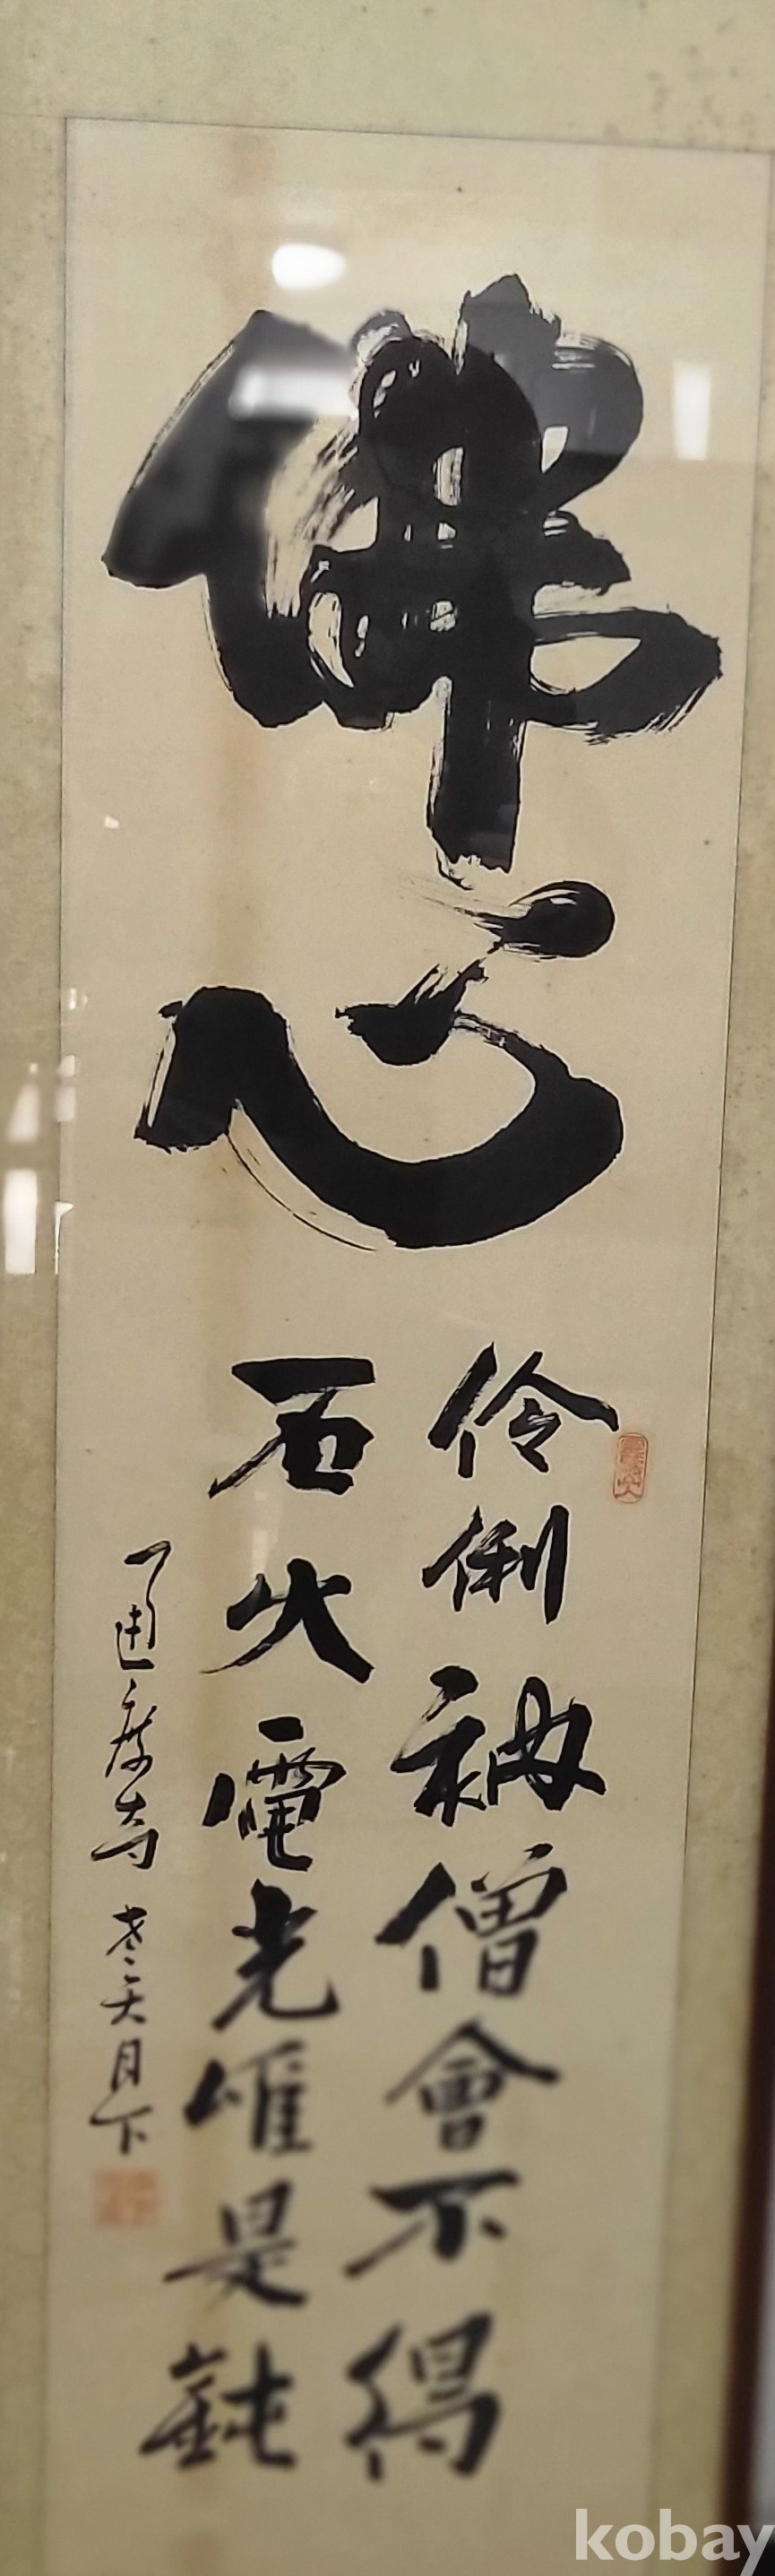 佛心
伶俐衲僧會不得
石火電光唯是鈍
通度寺 老天月下
kobay